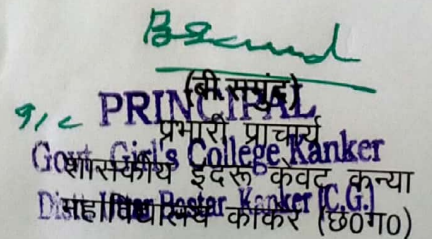 (बी.समुंद)
I/c PRINCIPAL
प्रभारी प्राचार्य
Govt. Girl's College Kanker
शासकीय इंदरू केंवट कन्या
Distt. Uttar Bastar Kanker (C.G.)
महाविद्यालय कांकेर (छ०ग०)